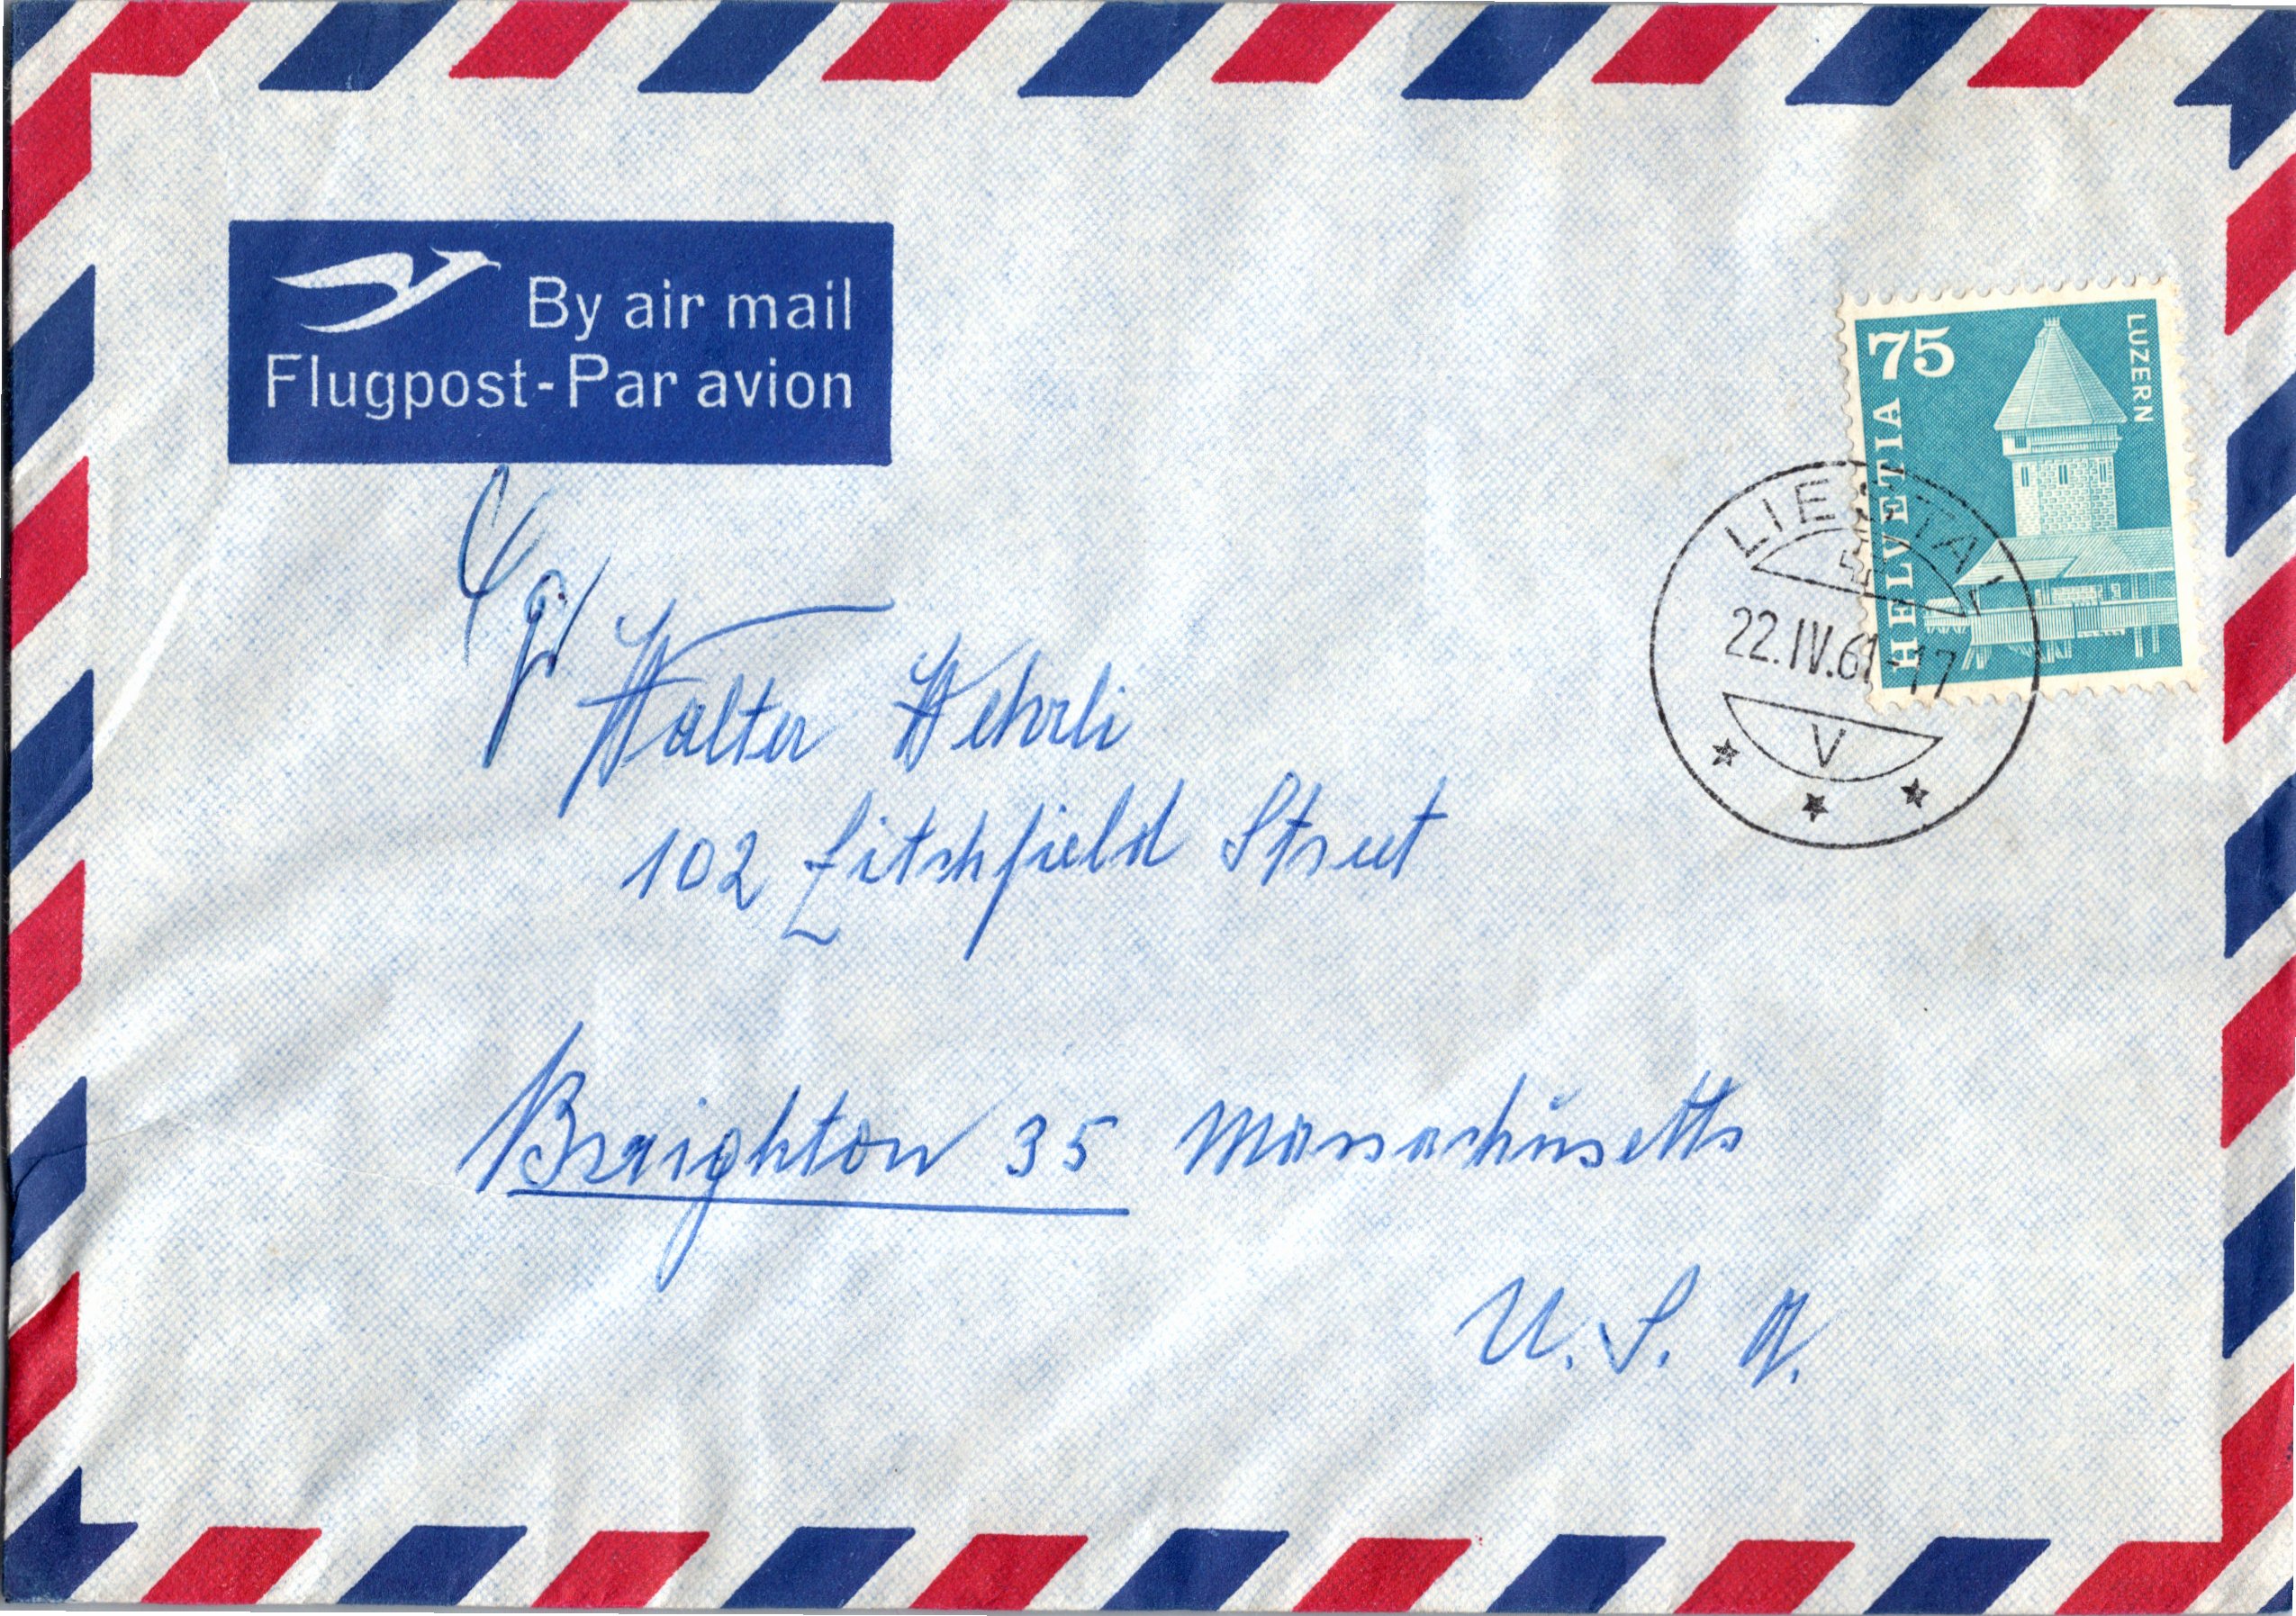 By air mail
Flugpost-Par avion
75
HELVETIA
LUZERN
LIESTAL
22.IV.61-17
V
Walter Wehrli
102 Litchfield Street
Brighton 35 Massachusetts
U. S. A.